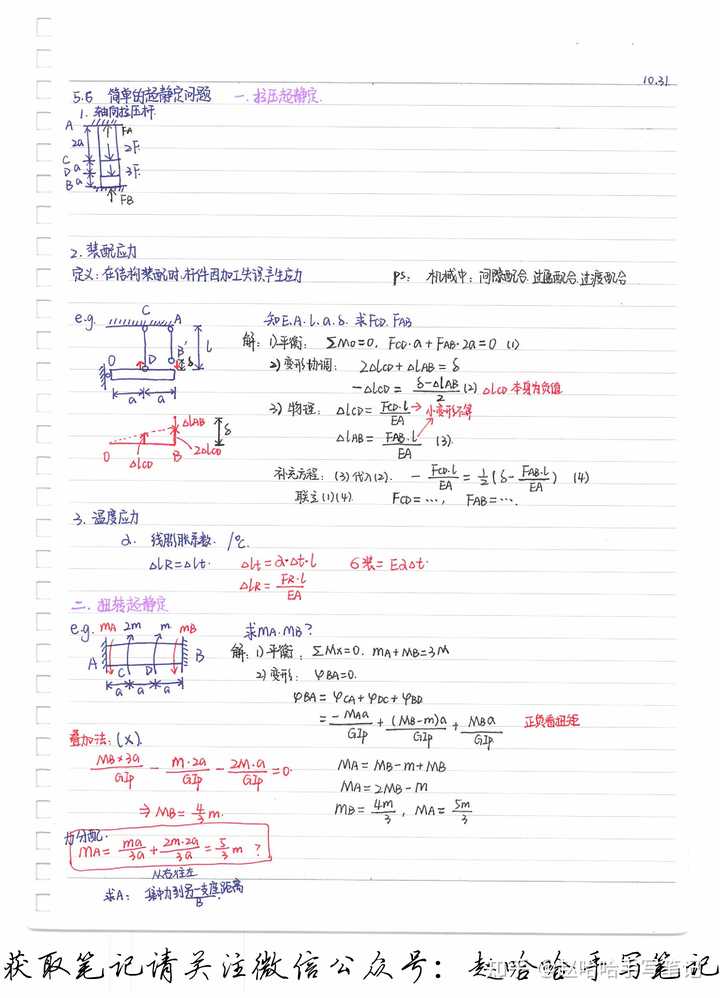 10.31
5.6 简单的超静定问题 一. 拉压超静定.
1. 轴向拉压杆.
A FA
2a 2F
C
D a 3F
B a
FB
2. 装配应力
定义: 在结构装配时, 杆件因加工失误产生应力 ps: 机械中: 间隙配合. 过盈配合. 过渡配合
e.g. C A 知E.A.l.a.δ. 求FCD. FAB
解: 1) 平衡: ΣMo=0, FCD·a+FAB·2a=0 (1)
O D B' δ l
2) 变形协调: 2ΔlCD+ΔlAB=δ
a a
-ΔlCD = (δ-ΔlAB)/2 (2) ΔlCD 本身为负值
3) 物理: ΔlCD = FCD·l/EA → 小变形不算
ΔlAB = FAB·l/EA (3)
ΔlAB δ
O ΔlCD B 2ΔlCD
补充方程: (3)代入(2). - FCD·l/EA = 1/2(δ- FAB·l/EA) (4)
联立(1)(4). FCD=⋯, FAB=⋯.
3. 温度应力
α. 线膨胀系数. /℃.
ΔlR=Δlt. Δlt=α·Δt·l б装=EαΔt.
ΔlR = FR·l/EA
二. 扭转超静定
e.g. mA 2m m mB 求mA. mB?
A C D B 解: 1) 平衡: ΣMx=0, mA+mB=3M
a a a 2) 变形: φBA=0.
φBA = φCA+φDC+φBD
= -MAa/GIp + (MB-m)a/GIp + MBa/GIp 正负看扭矩
叠加法: (x).
MB×3a/GIp - m·2a/GIp - 2M·a/GIp =0.
MA = MB-m+MB
MA = 2MB-m
⇒ MB= 4/3 m.
mB= 4m/3, MA= 5m/3
力分配.
MA= ma/3a + 2m·2a/3a = 5/3 m ?
从右往左
求A: 集中力到另一支座距离/B.
获取笔记请关注微信公众号：赵哈哈手写笔记
知乎 @赵哈哈手写笔记